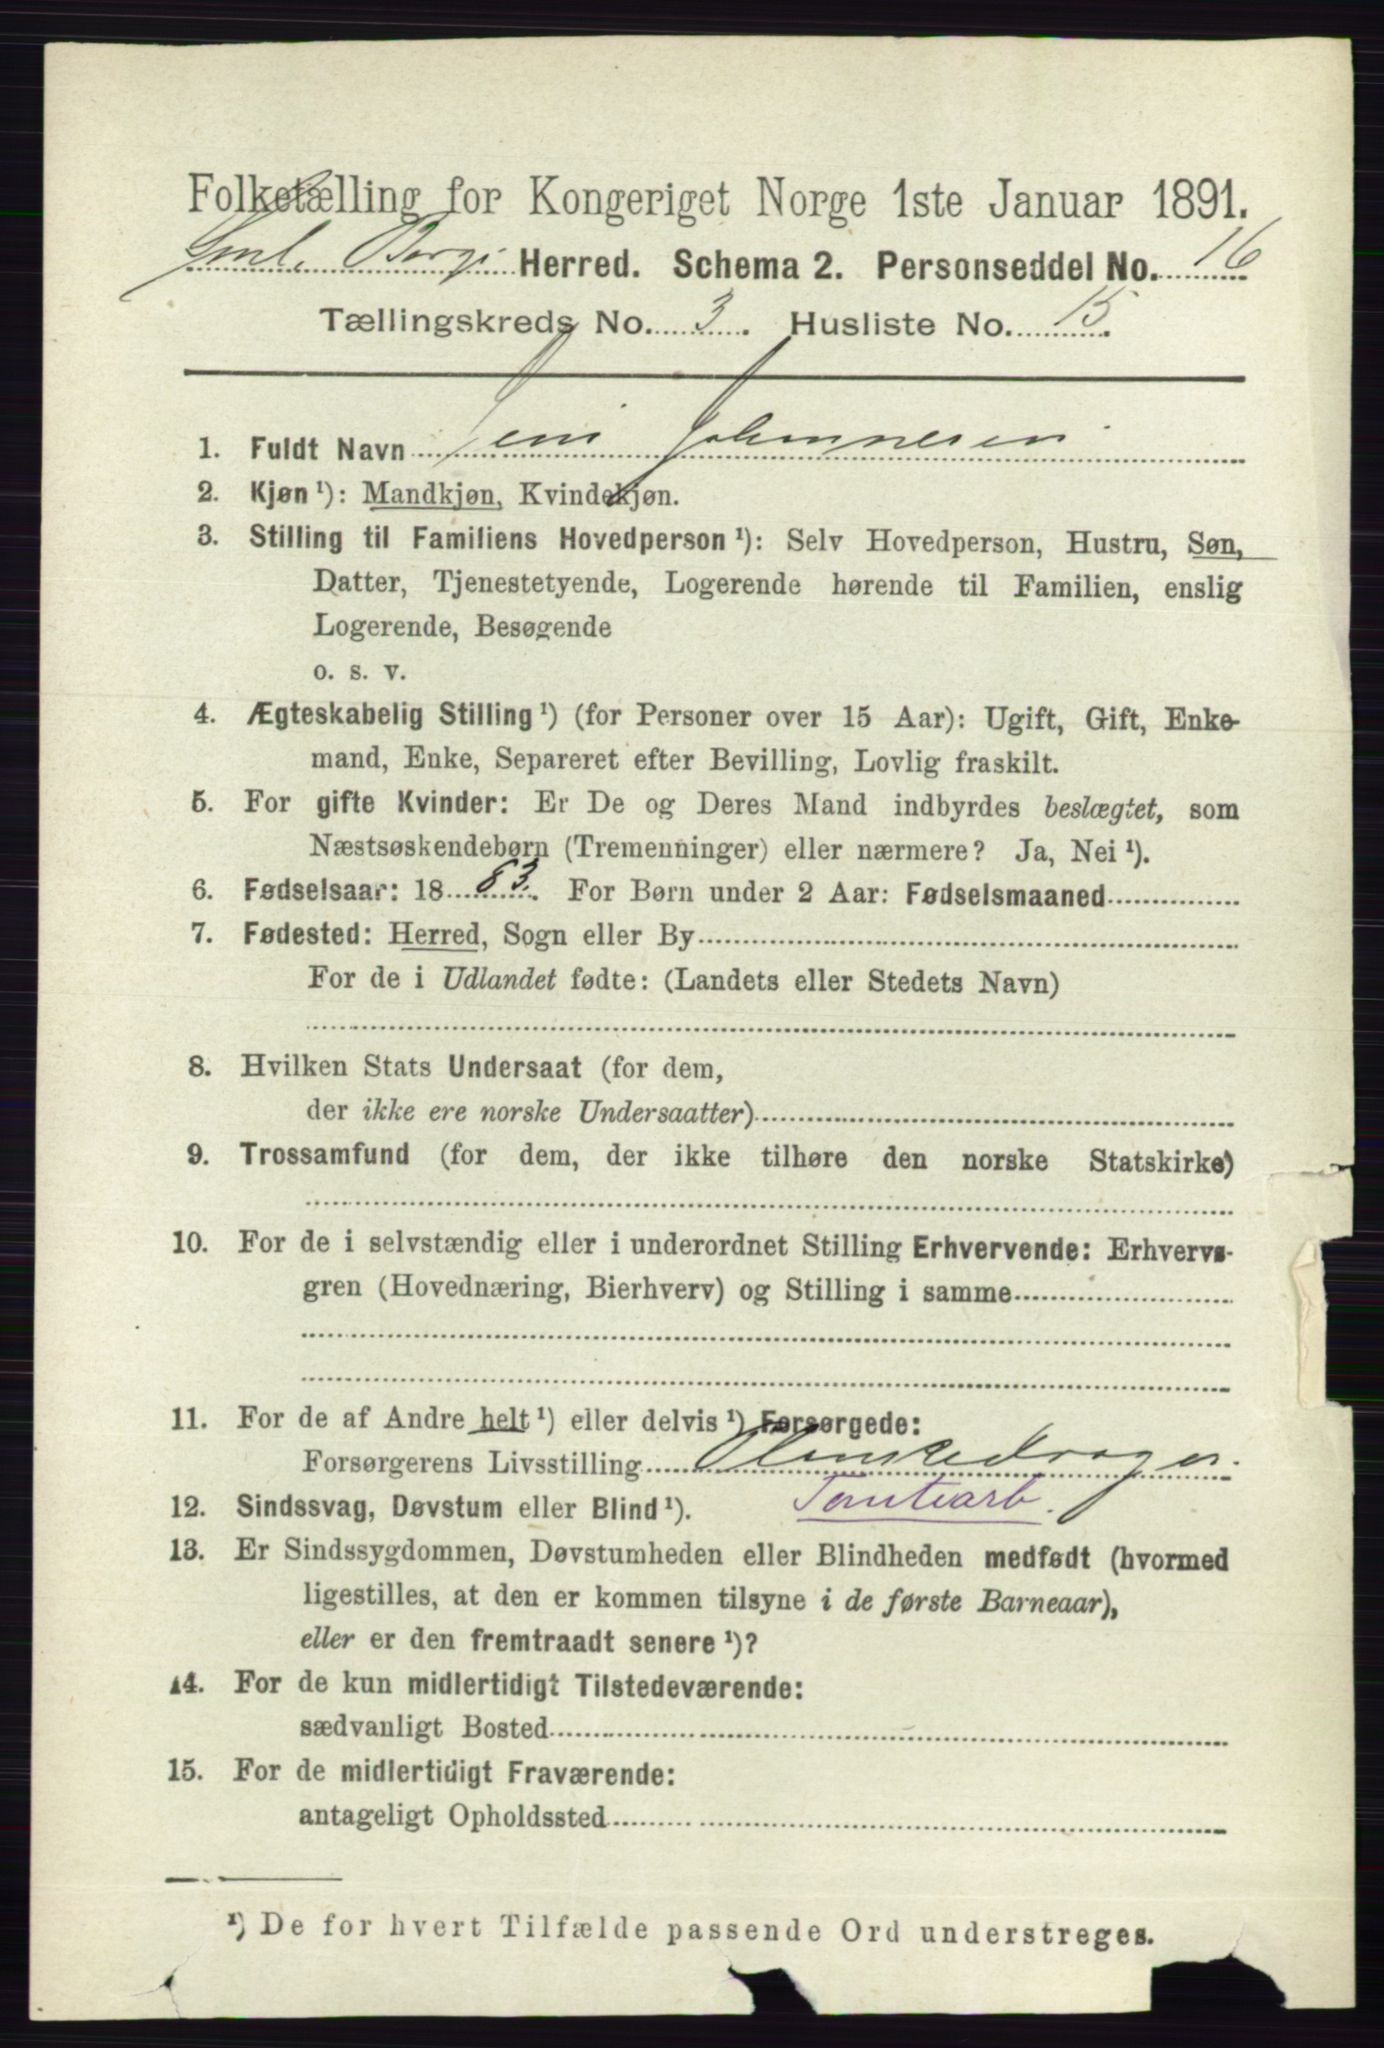 Folketælling for Kongeriget Norge 1ste Januar 1891.
Herred. Schema 2. Personseddel No. 16
Tællingskreds No. 3. Husliste No. 15.
1. Fuldt Navn Jens Johannesen
2. Kjøn ¹): Mandkjøn, Kvindekjøn.
3. Stilling til Familiens Hovedperson ¹): Selv Hovedperson, Hustru, Søn,
Datter, Tjenestetyende, Logerende hørende til Familien, enslig
Logerende, Besøgende
o. s. v.
4. Ægteskabelig Stilling ¹) (for Personer over 15 Aar): Ugift, Gift, Enke-
mand, Enke, Separeret efter Bevilling, Lovlig fraskilt.
5. For gifte Kvinder: Er De og Deres Mand indbyrdes beslægtet, som
Næstsøskendebørn (Tremenninger) eller nærmere? Ja, Nei ¹).
6. Fødselsaar: 18 83. For Børn under 2 Aar: Fødselsmaaned
7. Fødested: Herred, Sogn eller By
For de i Udlandet fødte: (Landets eller Stedets Navn)
8. Hvilken Stats Undersaat (for dem,
der ikke ere norske Undersaatter)
9. Trossamfund (for dem, der ikke tilhøre den norske Statskirke)
10. For de i selvstændig eller i underordnet Stilling Erhvervende: Erhvervs-
gren (Hovednæring, Bierhverv) og Stilling i samme
11. For de af Andre helt ¹) eller delvis ¹) Forsørgede:
Forsørgerens Livsstilling Plankedrager
12. Sindssvag, Døvstum eller Blind ¹). Tomtearb.
13. Er Sindssygdommen, Døvstumheden eller Blindheden medfødt (hvormed
ligestilles, at den er kommen tilsyne i de første Barneaar),
eller er den fremtraadt senere ¹)?
14. For de kun midlertidigt Tilstedeværende:
sædvanligt Bosted
15. For de midlertidigt Fraværende:
antageligt Opholdssted
¹) De for hvert Tilfælde passende Ord understreges.